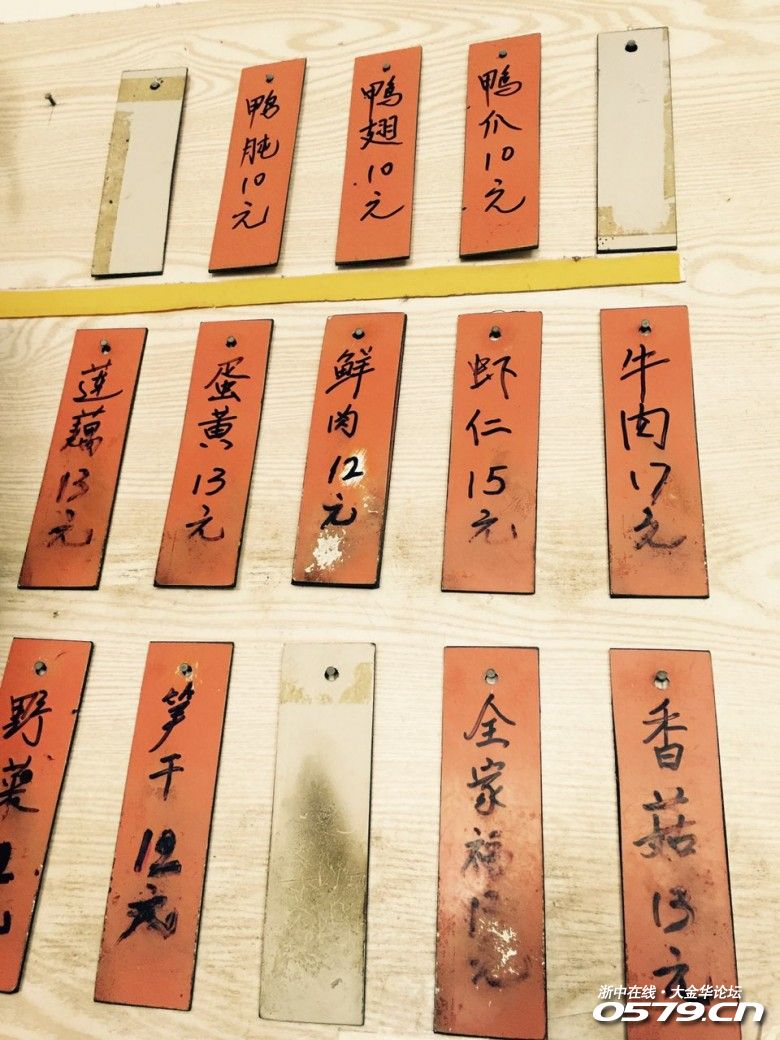 鸭肫10元
鸭翅10元
鸭爪10元
莲藕13元
蛋黄13元
鲜肉12元
虾仁15元
牛肉17元
野菜
笋干12元
全家福 元
香菇13元
浙中在线·大金华论坛
0579.cn